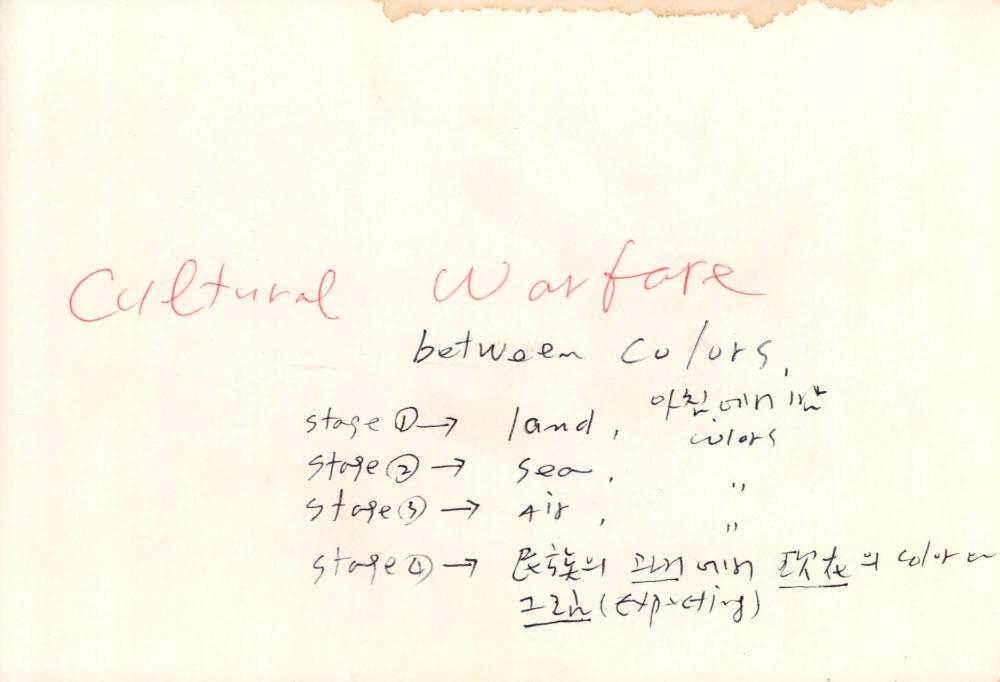 Cultural Warfare
between Colors,
stage ① → land, 아침에서 밤
colors
stage ② → sea, 〃
stage ③ → air, 〃
stage ④ → 民族의 과거에서 現在의
그림 (expecting)